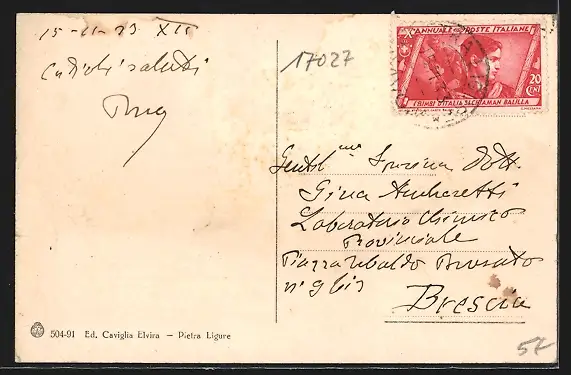 15-11-33 XII
Cordiali saluti
17027
X ANNUALE POSTE ITALIANE
20
CENT
I BIMBI D'ITALIA SI CHIAMAN BALILLA
Gentil.ma Sig.rina Dott.
Gina Andreetti
Laboratorio Chimico
Provinciale
Piazza Tebaldo Brusato
n° 9 bis
Brescia
504-91 Ed. Caviglia Elvira — Pietra Ligure
57